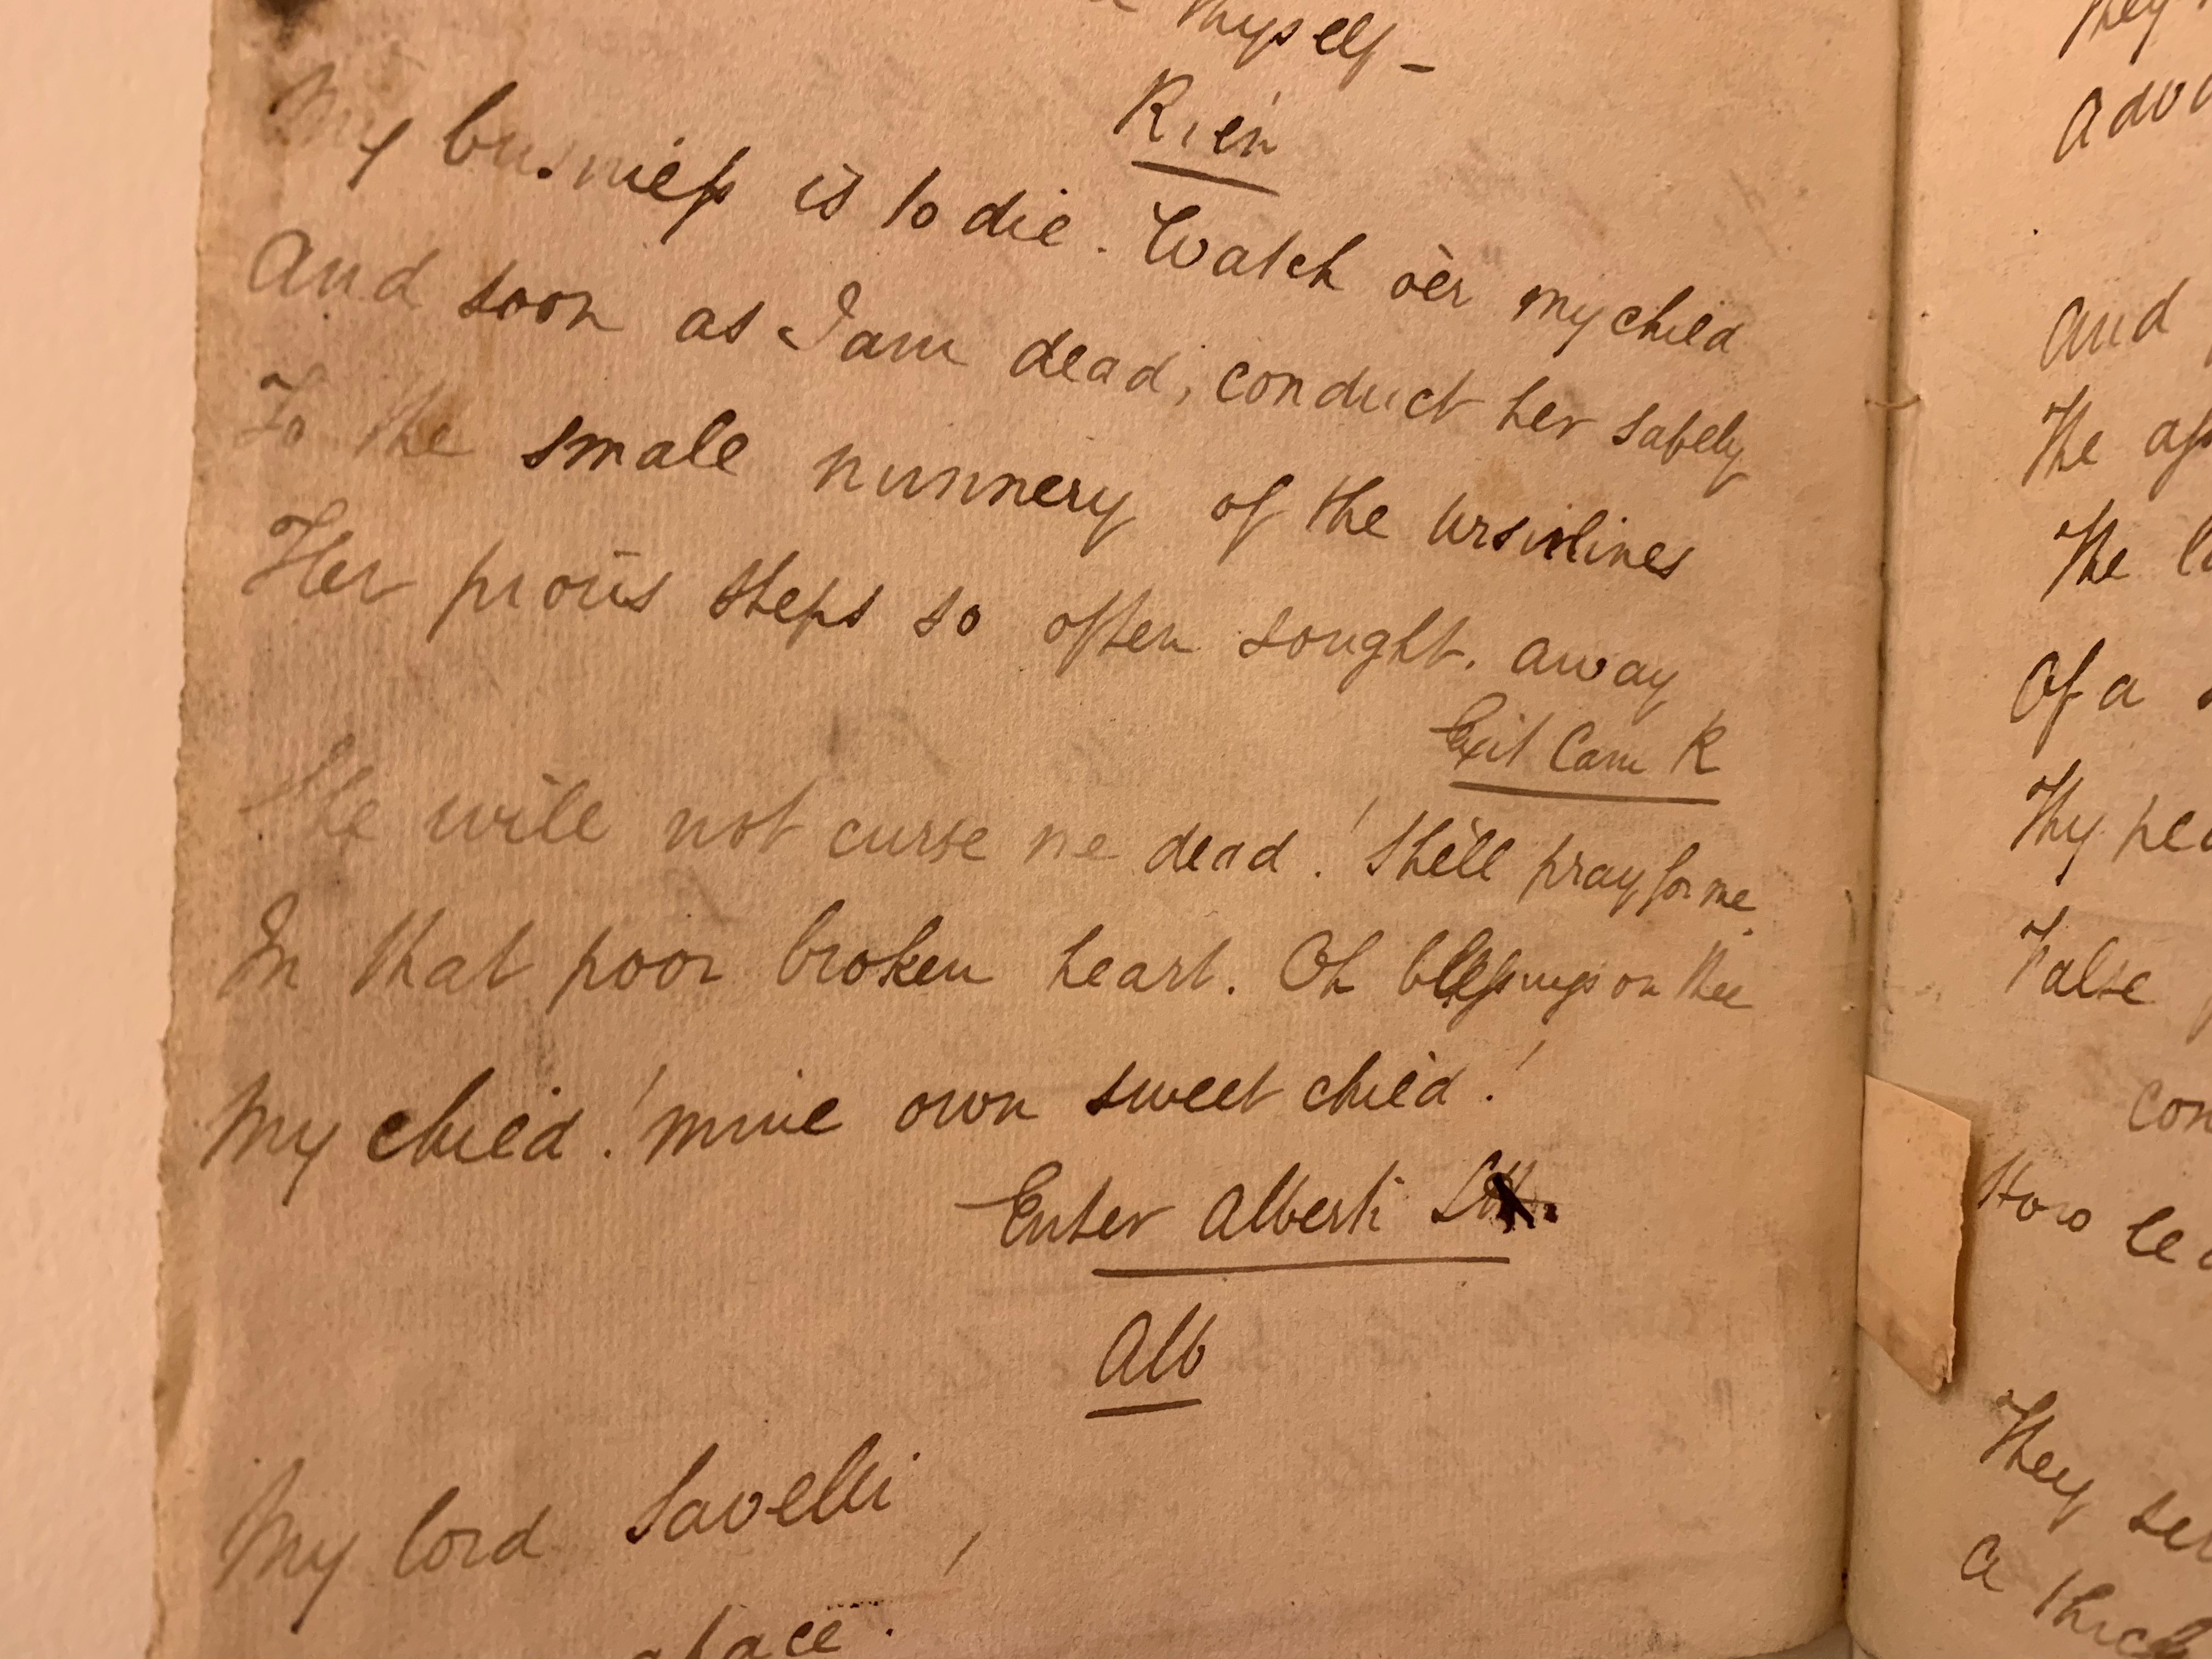 thyself –
Rien
My business is to die. Watch o'er my child
And soon as I am dead, conduct her safely
To the small nunnery of the Ursulines
Her pious steps so often sought. away
Exit Cam R
She will not curse me dead! She'll pray for me
In that poor broken heart. Oh blessings on thee
My child! mine own sweet child!
Enter Alberti
Alb
My lord Savelli,
place.
They
and
The
The
Of a
Thy
False
How
They
a thick